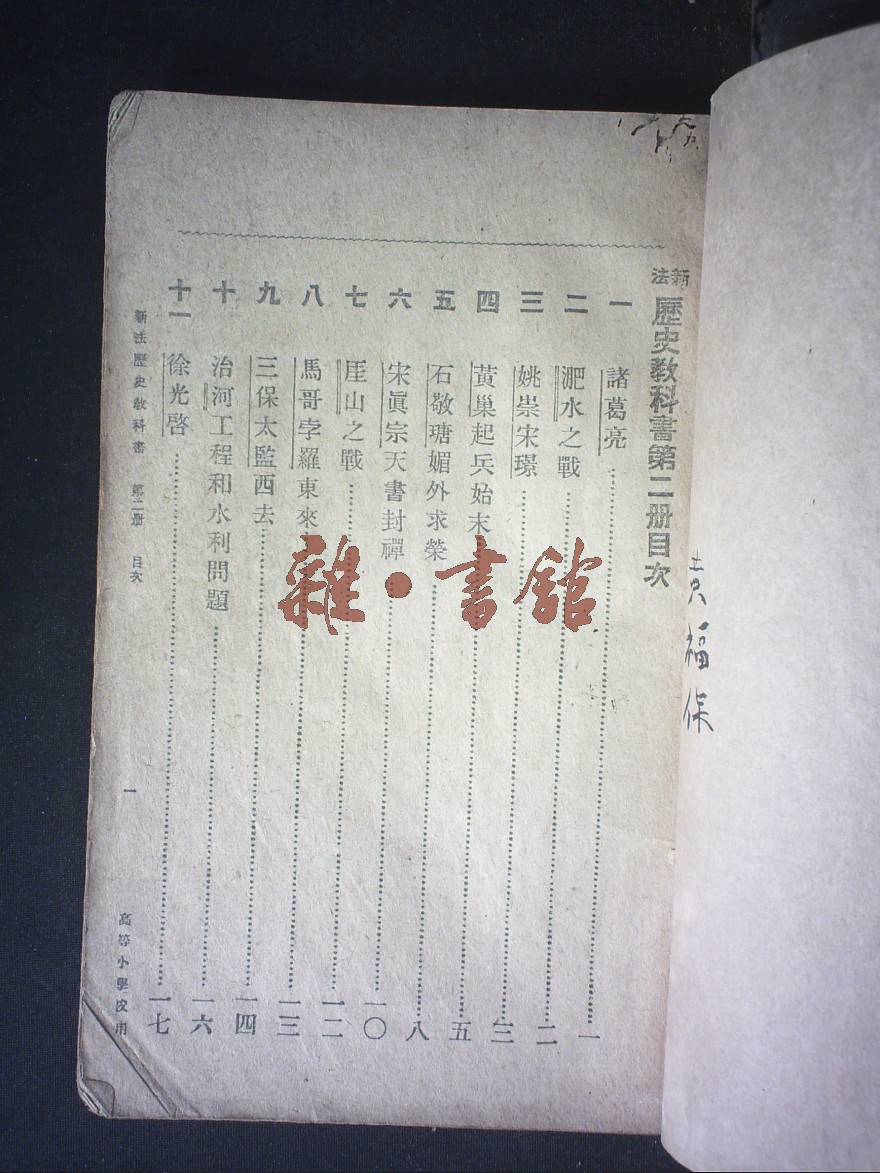 新法歷史教科書第二册目次
一 諸葛亮 一
二 淝水之戰 二
三 姚崇宋璟 三
四 黃巢起兵始末 五
五 石敬瑭媚外求榮 八
六 宋眞宗天書封禪 一〇
七 厓山之戰 一二
八 馬哥孛羅東來 一三
九 三保太監西去 一四
十 治河工程和水利問題 一六
十一 徐光啓 一七
新法歷史教科書 第二册 目次 一 高等小學校用
雜·書館
袁福保